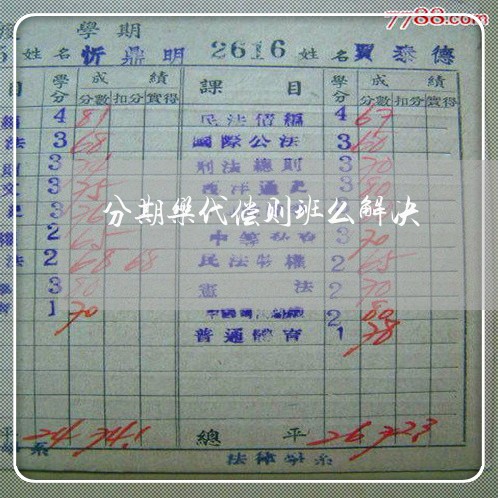 7788.com
學期
姓名 忻鼎明 2616 姓名 賈泰德
目 學分 成績 課目 學分 成績
分數 扣分 實得 分數 扣分 實得
4 81 民法債編 4 67
法 3 68 國際公法 3 60
3 刑法總則 3 70
3 75 西洋通史 3 80
3
分期樂代偿则班么解决
2 65 3 70
法 2 68 68 民法物權 2 65
3 80 憲法 2 70
1 70 2 80
普通體育 1 78
平 24 74.1 總平 26 72.3
系 法律學系